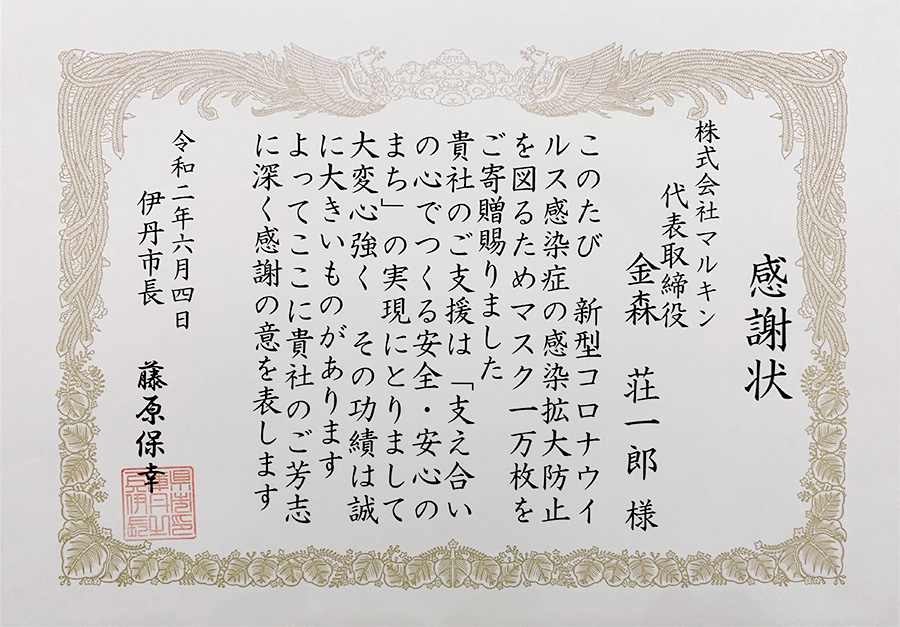 感謝状
株式会社マルキン
代表取締役
金森 荘一郎 様
このたび 新型コロナウイ
ルス感染症の感染拡大防止
を図るためマスク一万枚を
ご寄贈賜りました
貴社のご支援は「支え合い
の心でつくる安全・安心の
まち」の実現にとりまして
大変心強く その功績は誠
に大きいものがあります
よってここに貴社のご芳志
に深く感謝の意を表します
令和二年六月四日
伊丹市長 藤原保幸